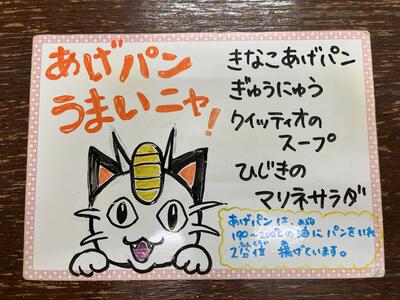 あげパン
うまいニャ!
きなこあげパン
ぎゅうにゅう
クイッティオの
スープ
ひじきの
マリネサラダ
あげパンは、
190〜200℃の油にパンをいれ
2分位 揚げています。